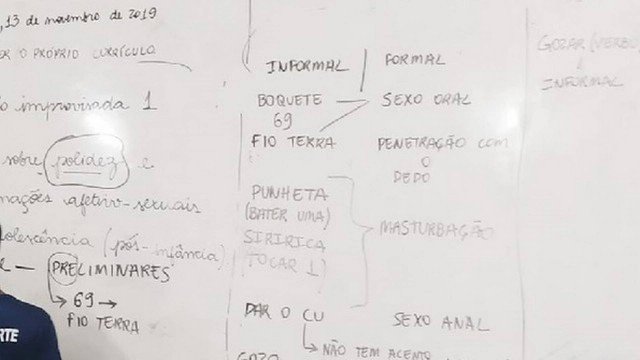 , 13 de novembro de 2019
ER O PRÓPRIO CURRÍCULO
improvisada 1
sobre polidez e
mações afetivo-sexuais
dolescência (pós-infância)
PRELIMINARES
69
FIO TERRA
RTE
INFORMAL
FORMAL
BOQUETE
SEXO ORAL
69
FIO TERRA
PENETRAÇÃO COM
O
DEDO
PUNHETA
(BATER UMA)
MASTURBAÇÃO
SIRIRICA
(TOCAR 1)
DAR O CU
SEXO ANAL
NÃO TEM ACENTO
GOZO
GOZAR (VERBO)
É
INFORMAL